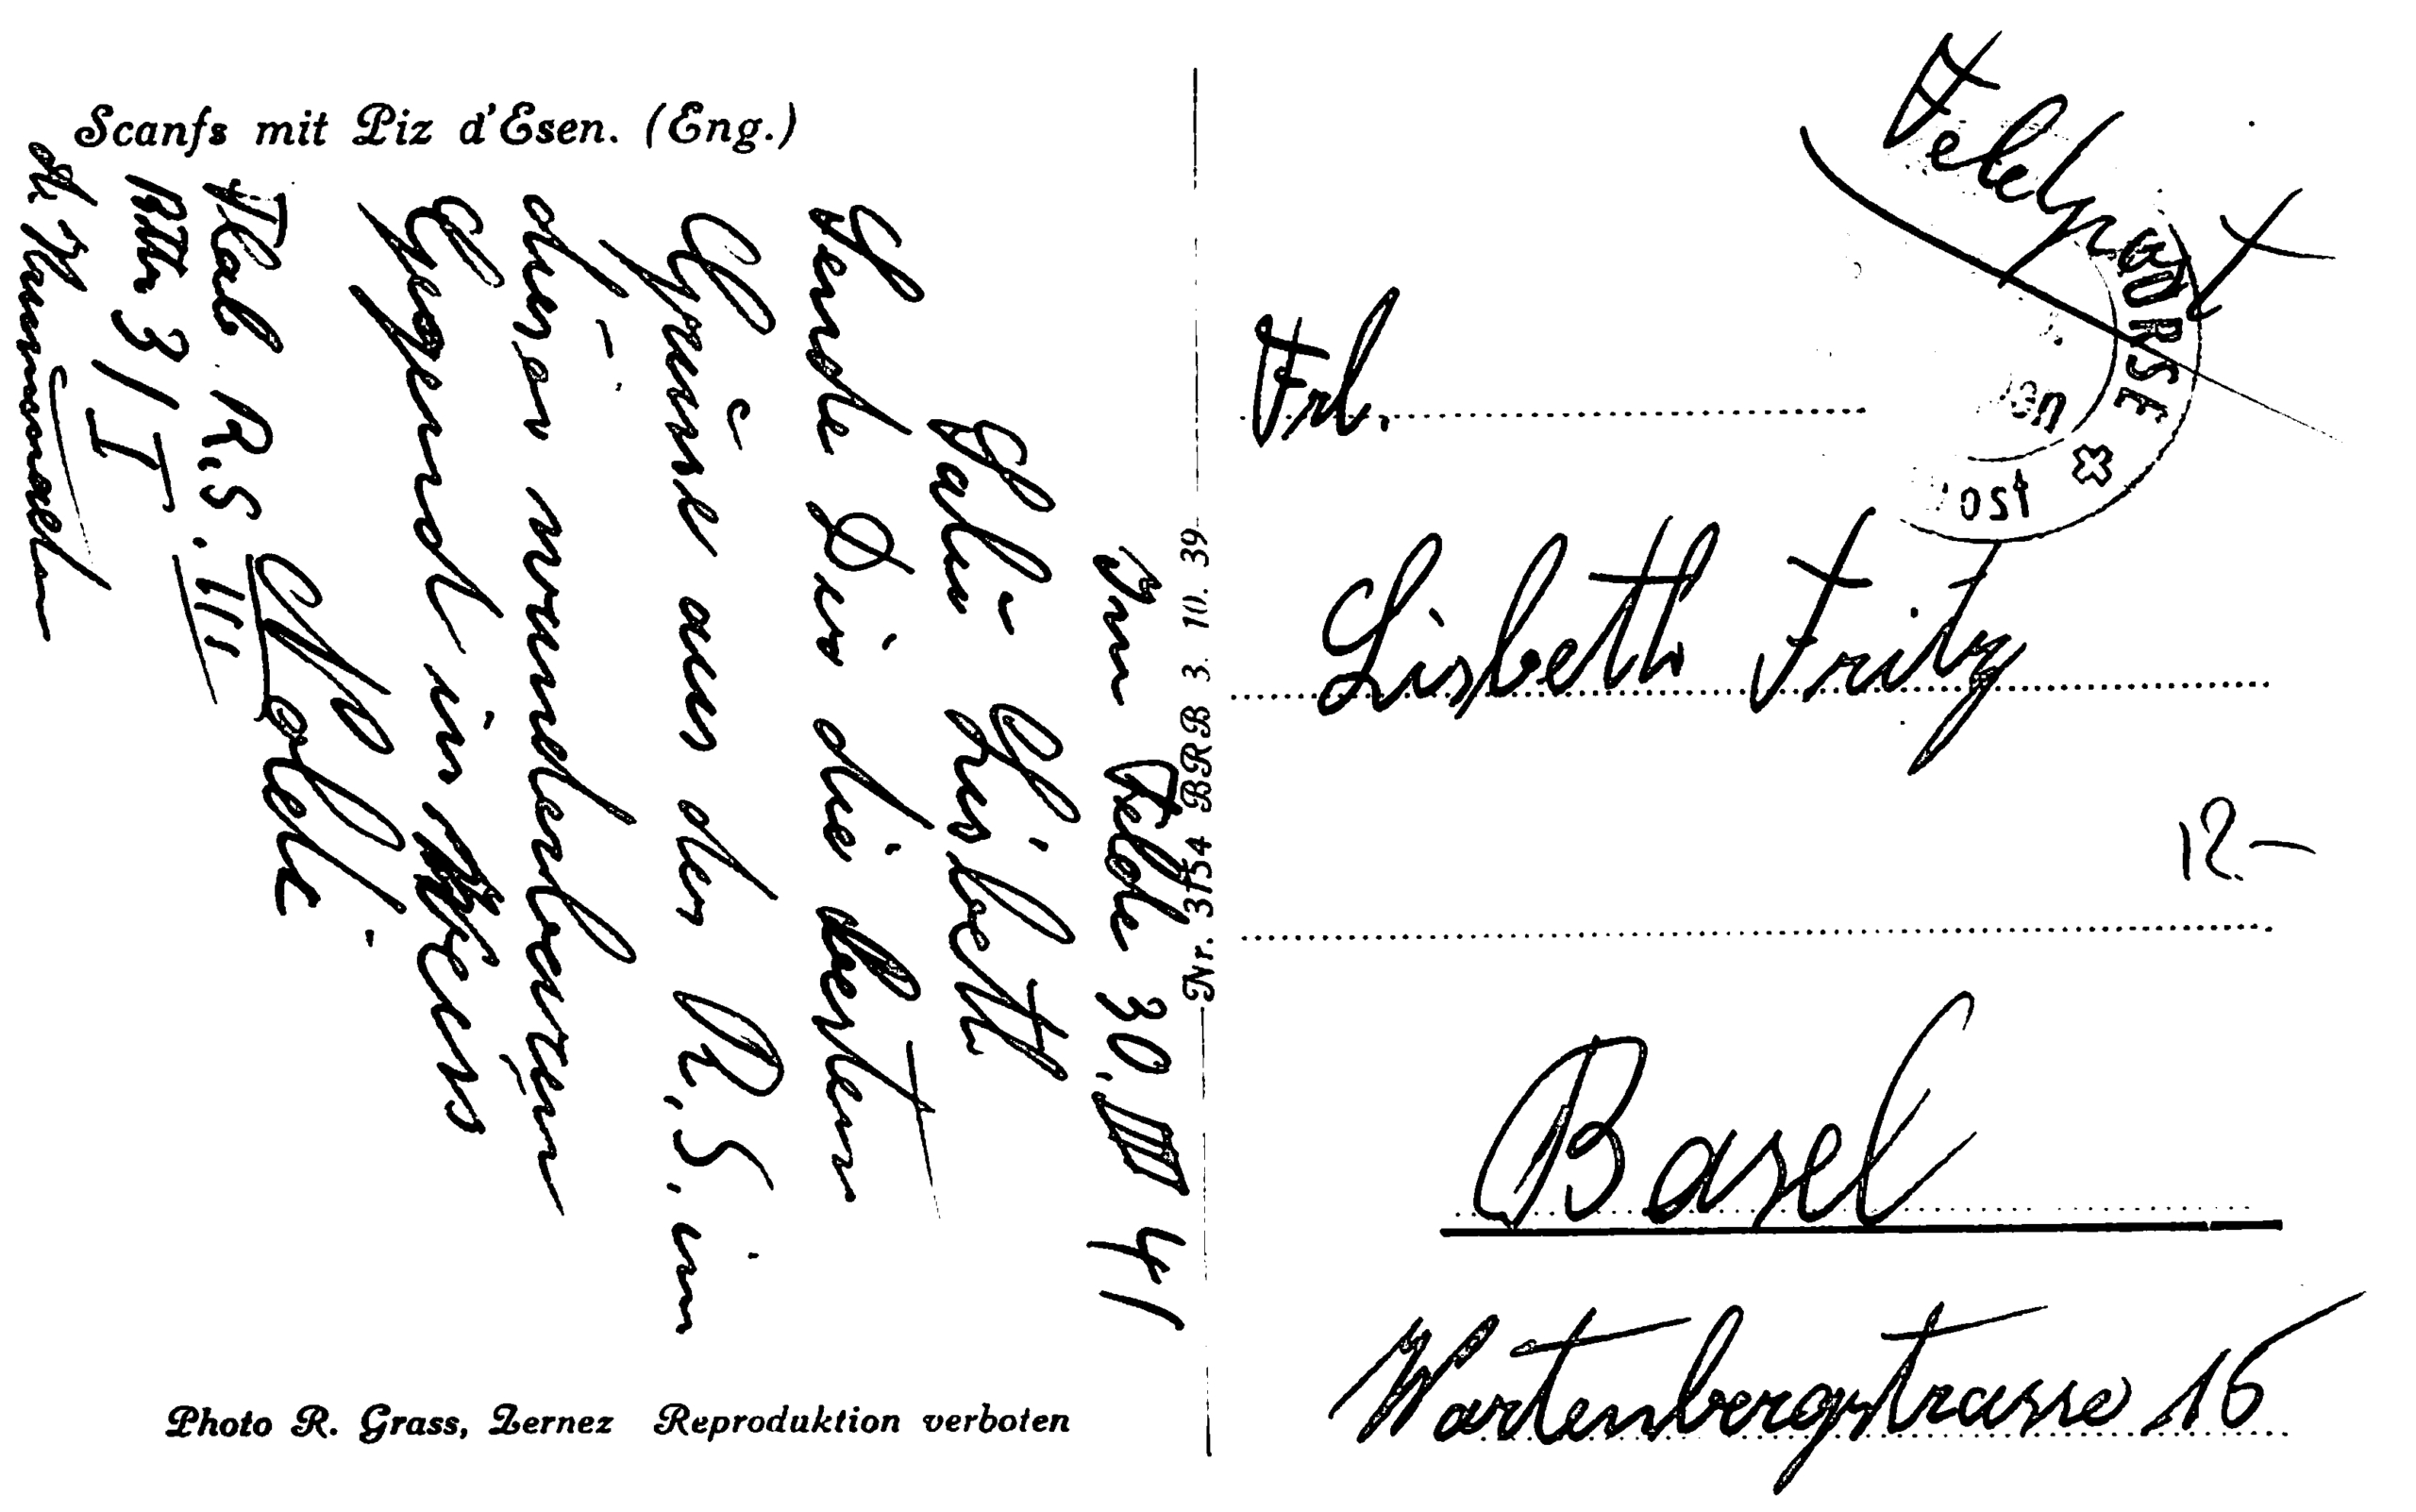 Scanfs mit Piz d'Esen. (Eng.)
Im Felde 30. III 41
Salü Lisbeth
Sende Dir die besten
Grüsse aus der R.S. in
dieser wunderbaren
Gegend in
R.S. III
Bttr. 3 / I
Nr. 3154 BRB 3. 10. 39
Photo R. Grass, Zernez Reproduktion verboten
Feldpost
Frl.
Lisbeth Fritz
12-
Basel
Wartenbergstrasse 16